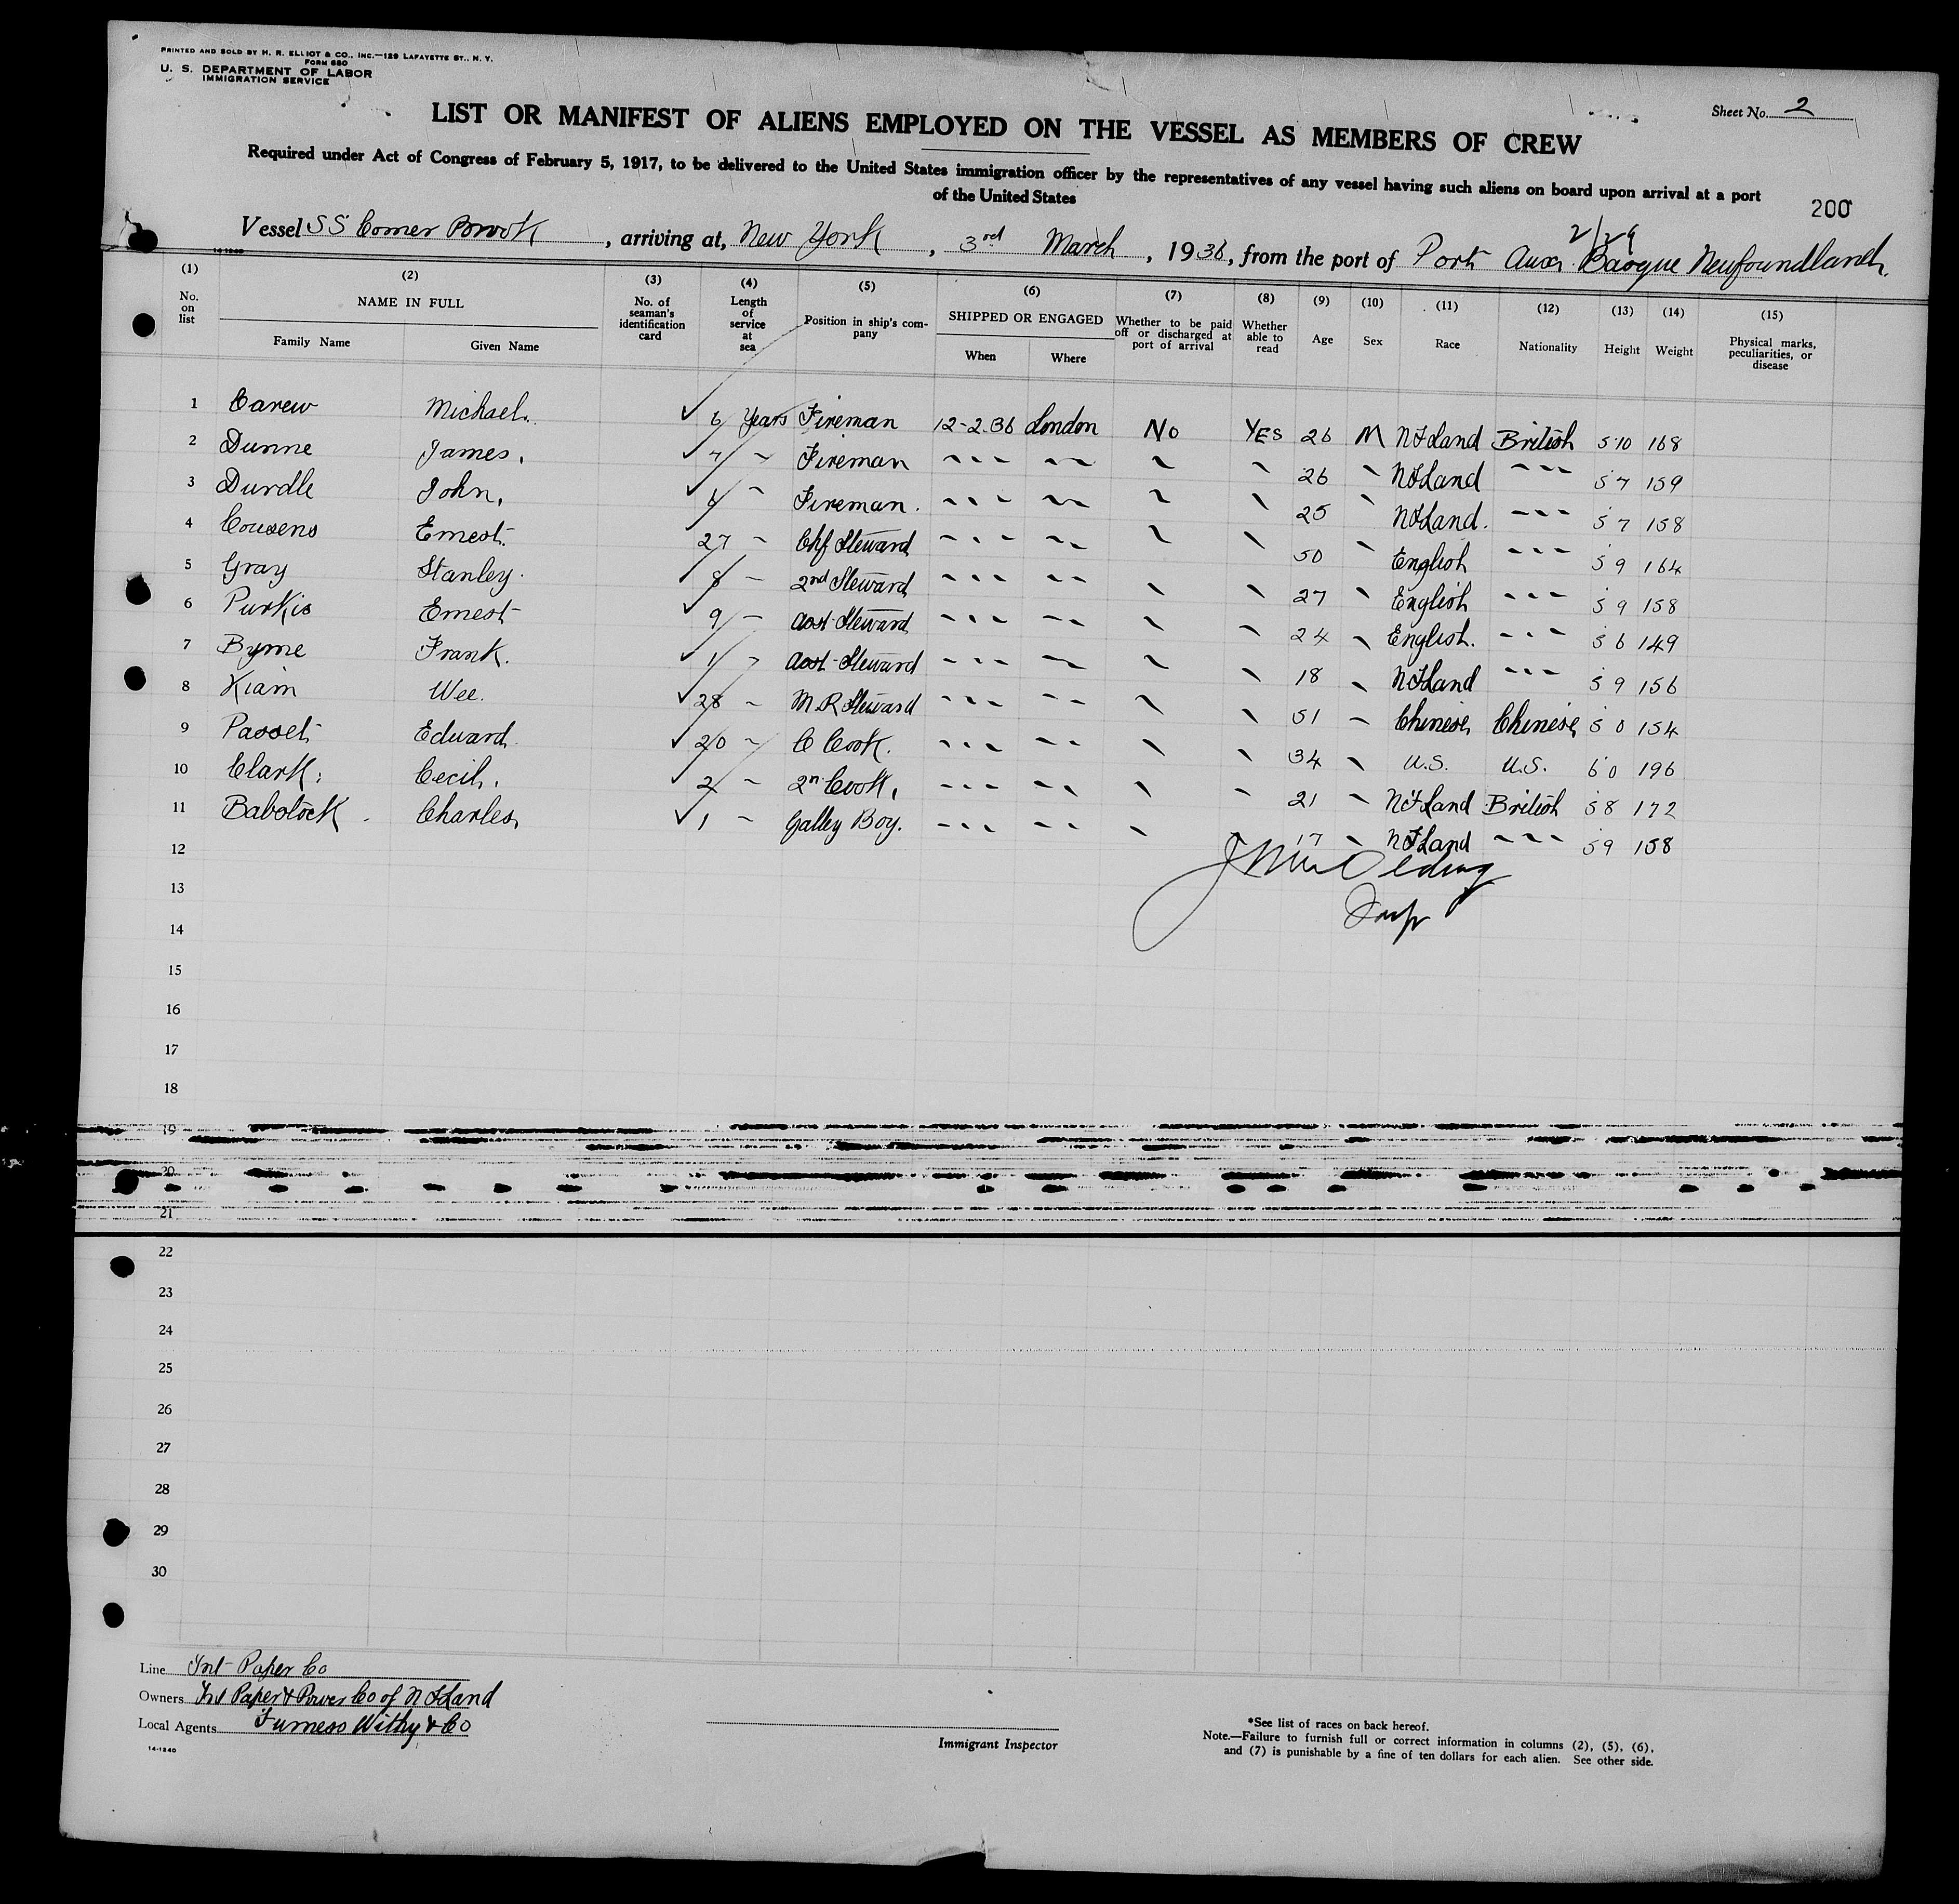 PRINTED AND SOLD BY H. R. ELLIOT & CO., INC.—129 LAFAYETTE ST., N. Y.
FORM 680
U. S. DEPARTMENT OF LABOR
IMMIGRATION SERVICE
Sheet No. 2
LIST OR MANIFEST OF ALIENS EMPLOYED ON THE VESSEL AS MEMBERS OF CREW
Required under Act of Congress of February 5, 1917, to be delivered to the United States immigration officer by the representatives of any vessel having such aliens on board upon arrival at a port
of the United States
200
2/29
Vessel SS Corner Brook, arriving at, New York, 3rd March, 1936, from the port of Port Aux Basque Newfoundland.
14-1240
(1) No. on list
(2) NAME IN FULL
Family Name Given Name
(3) No. of seaman's identification card
(4) Length of service at sea
(5) Position in ship's company
(6) SHIPPED OR ENGAGED
When Where
(7) Whether to be paid off or discharged at port of arrival
(8) Whether able to read
(9) Age
(10) Sex
(11) Race
(12) Nationality
(13) Height
(14) Weight
(15) Physical marks, peculiarities, or disease
1 Carew Michael. ✓ 6 Years Fireman 12-2.36 London No YES 26 M NFLand British 5 10 168
2 Dunne James. ✓ 7 " Fireman " " " " 26 " NFLand " 5 7 159
3 Durdle John. ✓ " Fireman. " " " " 25 " NFLand. " 5 7 158
4 Cousens Ernest. 27 " Chf Steward " " " " 50 " English " 5 9 164
5 Gray Stanley. ✓ 8 " 2nd Steward " " " " 27 " English " 5 9 158
6 Purkis Ernest ✓ 9 " Asst Steward " " " " 24 " English. " 5 6 149
7 Byrne Frank. ✓ 1 " Asst-Steward " " " " 18 " NFLand " 5 9 156
8 Kiam Wee. ✓ 28 " M.R Steward " " " " 51 " Chinese Chinese 5 0 154
9 Passet Edward ✓ 20 " C Cook. " " " " 34 " U.S. U.S. 6 0 196
10 Clark. Cecil. ✓ 2 " 2n Cook. " " " " 21 " NFLand British 5 8 172
11 Babstock Charles, ✓ 1 " Galley Boy. " " " 17 " NFLand " 5 9 158
12
13
14
15
16
17
18
19
20
21
22
23
24
25
26
27
28
29
30
Line Int-Paper Co
Owners Int Paper & Power Co of NFLand
Local Agents Furness Withy & Co
14-1240
Immigrant Inspector
*See list of races on back hereof.
Note.—Failure to furnish full or correct information in columns (2), (5), (6),
and (7) is punishable by a fine of ten dollars for each alien. See other side.